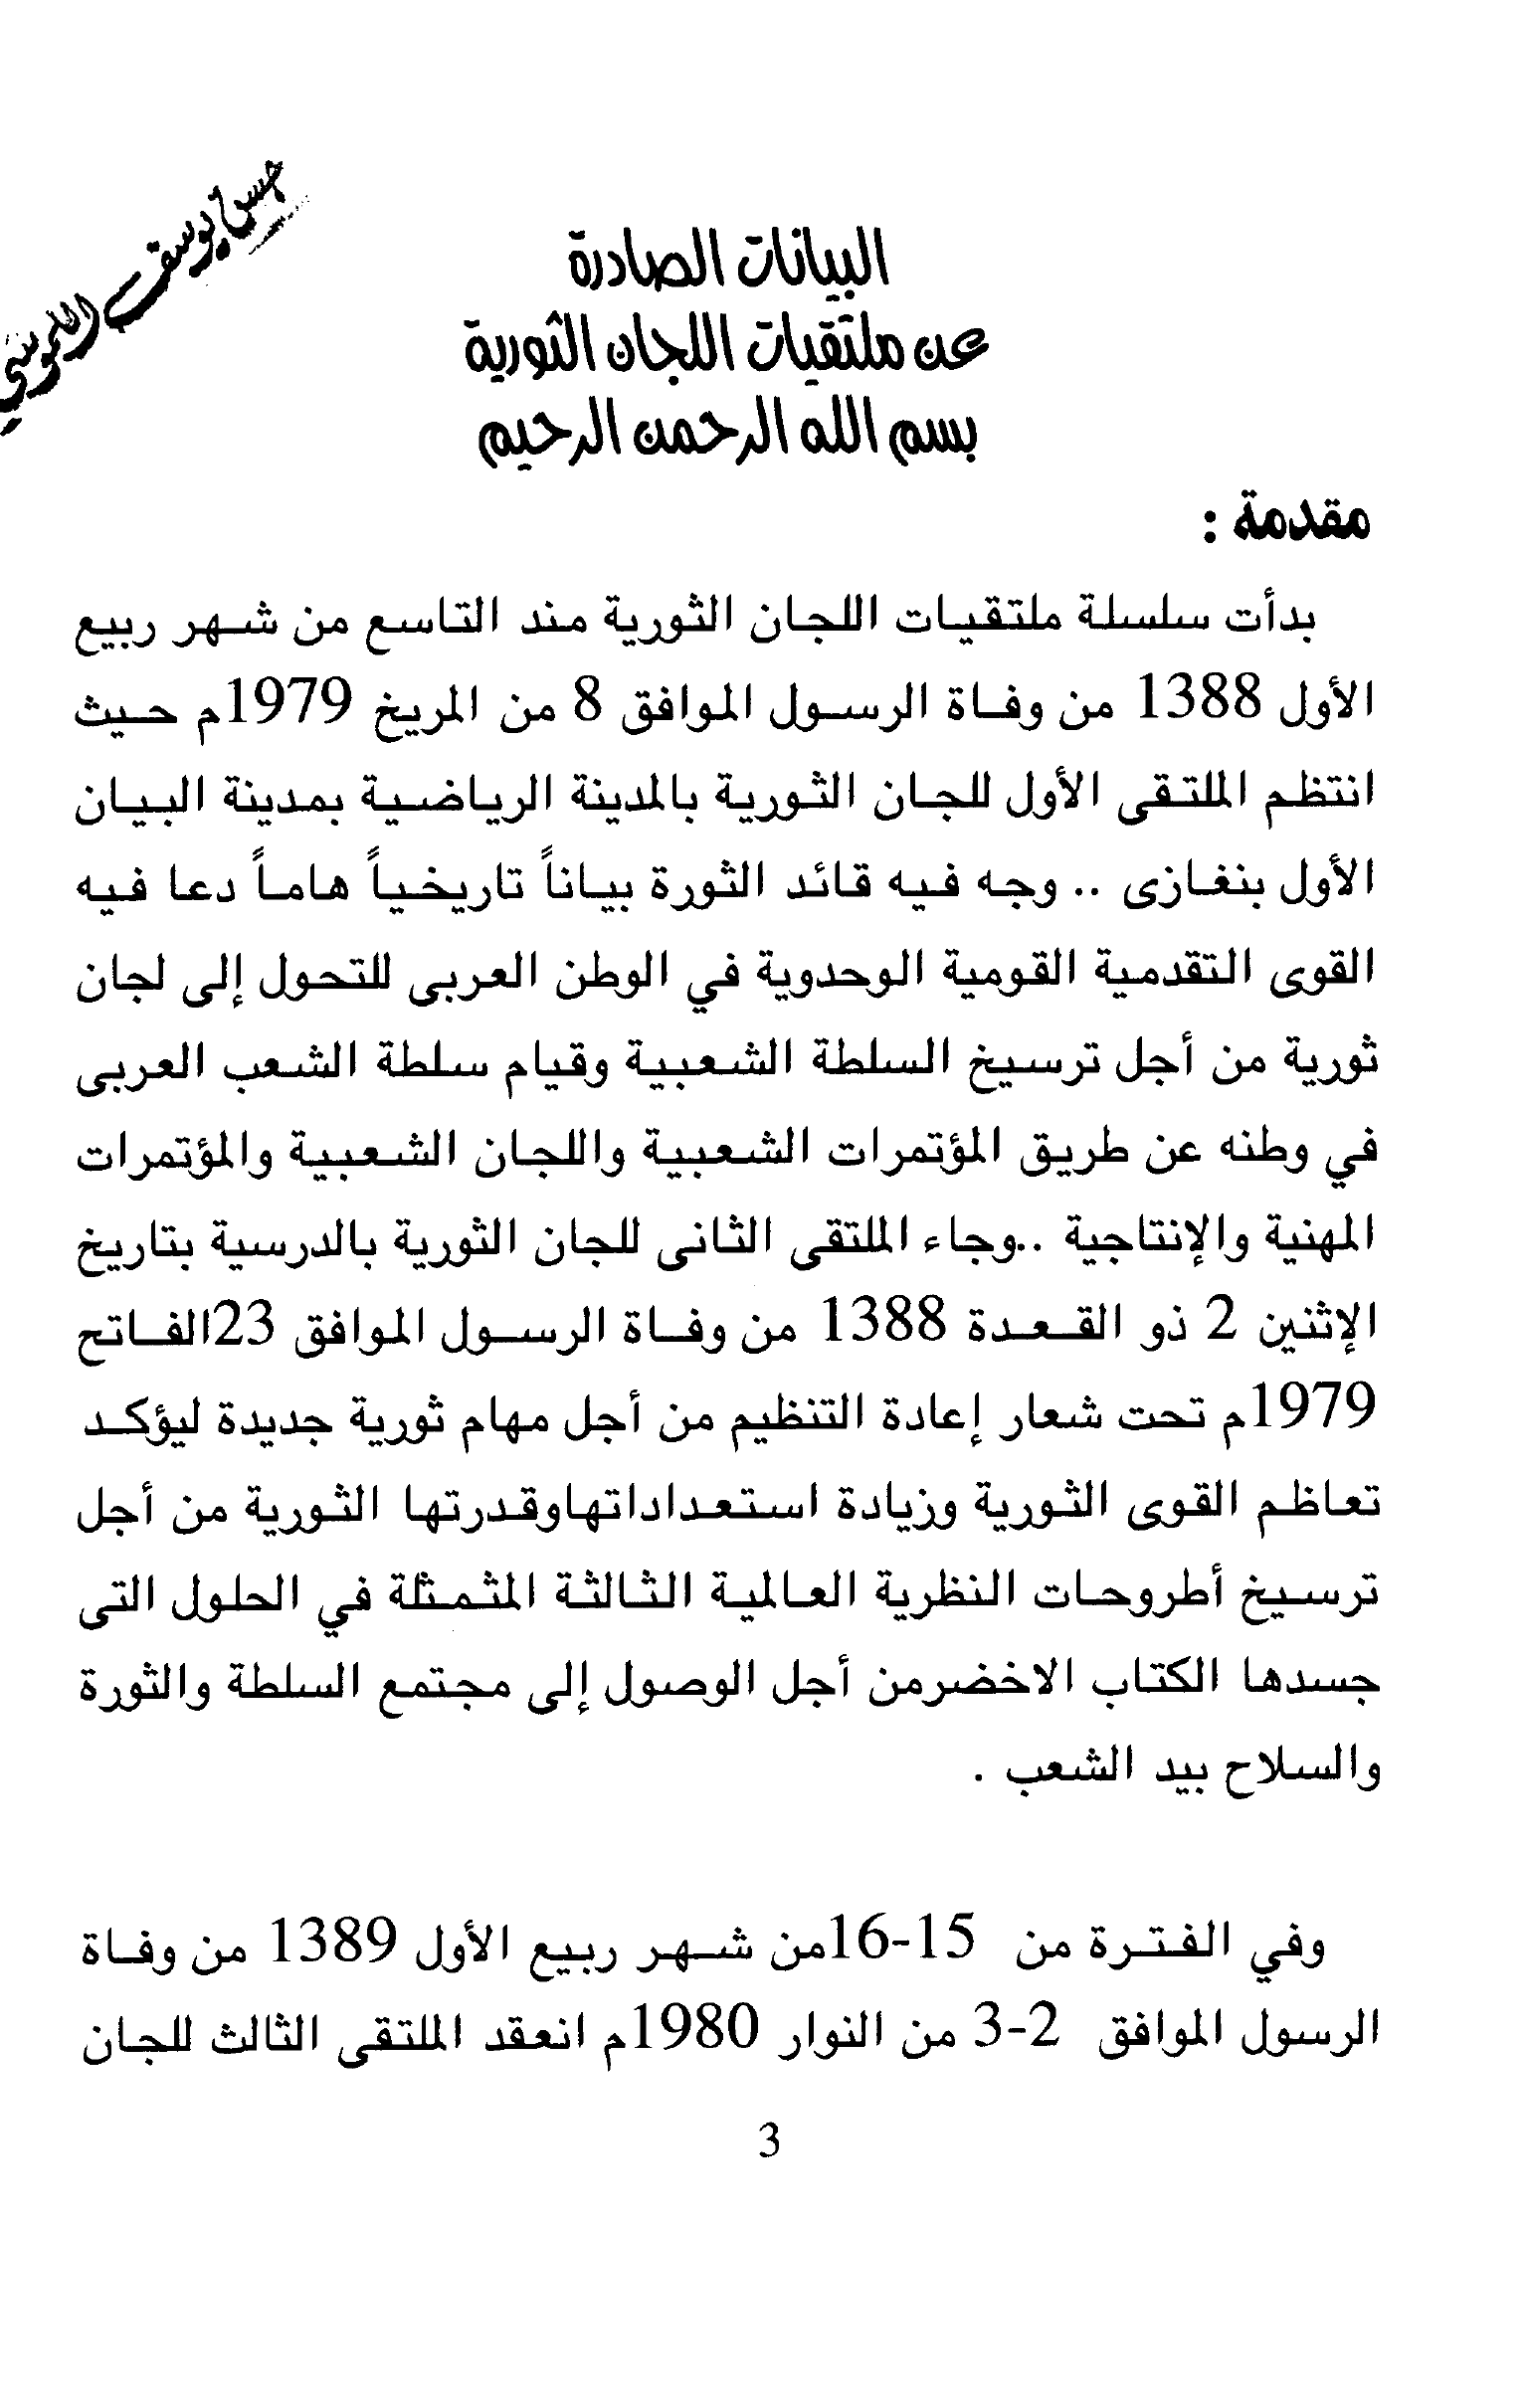 البيانات الصادرة
عن ملتقيات اللجان الثورية
بسم الله الرحمن الرحيم
مقدمة :
بدأت سلسلة ملتقيات اللجان الثورية مند التاسع من شهر ربيع
الأول 1388 من وفاة الرسول الموافق 8 من المريخ 1979م حيث
انتظم الملتقى الأول للجان الثورية بالمدينة الرياضية بمدينة البيان
الأول بنغازى .. وجه فيه قائد الثورة بياناً تاريخياً هاماً دعا فيه
القوى التقدمية القومية الوحدوية في الوطن العربى للتحول إلى لجان
ثورية من أجل ترسيخ السلطة الشعبية وقيام سلطة الشعب العربى
في وطنه عن طريق المؤتمرات الشعبية واللجان الشعبية والمؤتمرات
المهنية والإنتاجية ..وجاء الملتقى الثانى للجان الثورية بالدرسية بتاريخ
الإثنين 2 ذو القعدة 1388 من وفاة الرسول الموافق 23الفاتح
1979م تحت شعار إعادة التنظيم من أجل مهام ثورية جديدة ليؤكد
تعاظم القوى الثورية وزيادة استعداداتهاوقدرتها الثورية من أجل
ترسيخ أطروحات النظرية العالمية الثالثة المثمثلة في الحلول التى
جسدها الكتاب الاخضرمن أجل الوصول إلى مجتمع السلطة والثورة
والسلاح بيد الشعب .
وفي الفترة من 15-16من شهر ربيع الأول 1389 من وفاة
الرسول الموافق 2-3 من النوار 1980م انعقد الملتقى الثالث للجان
3
يوسف